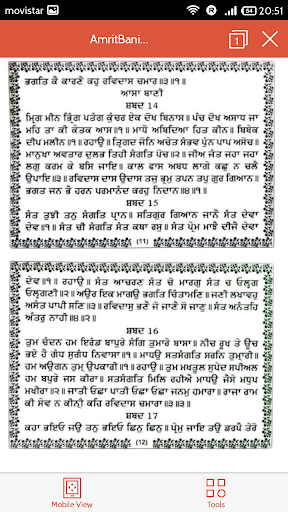 movistar
20:51
AmritBani...
1
ਭਗਤਿ ਕੈ ਕਾਰਣੈ ਕਹੁ ਰਵਿਦਾਸ ਚਮਾਰ॥੩॥੧॥
ਆਸਾ ਬਾਣੀ
ਸ਼ਬਦ 14
ਮ੍ਰਿਗ ਮੀਨ ਭ੍ਰਿੰਗ ਪਤੰਗ ਕੁੰਚਰ ਏਕ ਦੋਖ ਬਿਨਾਸ॥ ਪੰਚ ਦੋਖ ਅਸਾਧ ਜਾ
ਮਹਿ ਤਾ ਕੀ ਕੇਤਕ ਆਸ॥੧॥ ਮਾਧੋ ਅਬਿਦਿਆ ਹਿਤ ਕੀਨ॥ ਬਿਬੇਕ
ਦੀਪ ਮਲੀਨ॥੧॥ ਰਹਾਉ॥ ਤ੍ਰਿਗਦ ਜੋਨਿ ਅਚੇਤ ਸੰਭਵ ਪੁੰਨ ਪਾਪ ਅਸੋਚ॥
ਮਾਨੁਖਾ ਅਵਤਾਰ ਦੁਲਭ ਤਿਹੀ ਸੰਗਤਿ ਪੋਚ॥੨॥ ਜੀਅ ਜੰਤ ਜਹਾ ਜਹਾ
ਲਗੁ ਕਰਮ ਕੇ ਬਸਿ ਜਾਇ॥ ਕਾਲ ਫਾਸ ਅਬਧ ਲਾਗੇ ਕਛੁ ਨ ਚਲੈ
ਉਪਾਇ॥੩॥ ਰਵਿਦਾਸ ਦਾਸ ਉਦਾਸ ਤਜੁ ਭ੍ਰਮੁ ਤਪਨ ਤਪੁ ਗੁਰ ਗਿਆਨ॥
ਭਗਤ ਜਨ ਭੈ ਹਰਨ ਪਰਮਾਨੰਦ ਕਰਹੁ ਨਿਦਾਨ॥੪॥੧॥
ਸ਼ਬਦ 15
ਸੰਤ ਤੁਝੀ ਤਨੁ ਸੰਗਤਿ ਪ੍ਰਾਨ॥ ਸਤਿਗੁਰ ਗਿਆਨ ਜਾਨੈ ਸੰਤ ਦੇਵਾ
ਦੇਵ॥੧॥ ਸੰਤ ਚੀ ਸੰਗਤਿ ਸੰਤ ਕਥਾ ਰਸੁ॥ ਸੰਤ ਪ੍ਰੇਮ ਮਾਝੈ ਦੀਜੈ ਦੇਵਾ
(11)
ਦੇਵ॥੧॥ ਰਹਾਉ॥ ਸੰਤ ਆਚਰਣ ਸੰਤ ਚੋ ਮਾਰਗੁ ਸੰਤ ਚ ਓਲ੍ਹਗ
ਓਲ੍ਹਗਣੀ॥੨॥ ਅਉਰ ਇਕ ਮਾਗਉ ਭਗਤਿ ਚਿੰਤਾਮਣਿ॥ ਜਣੀ ਲਖਾਵਹੁ
ਅਸੰਤ ਪਾਪੀ ਸਣਿ॥੩॥ ਰਵਿਦਾਸੁ ਭਣੈ ਜੋ ਜਾਣੈ ਸੋ ਜਾਣੁ॥ ਸੰਤ ਅਨੰਤਹਿ
ਅੰਤਰੁ ਨਾਹੀ॥੪॥੨॥
ਸ਼ਬਦ 16
ਤੁਮ ਚੰਦਨ ਹਮ ਇਰੰਡ ਬਾਪੁਰੇ ਸੰਗਿ ਤੁਮਾਰੇ ਬਾਸਾ॥ ਨੀਚ ਰੂਖ ਤੇ ਊਚ
ਭਏ ਹੈ ਗੰਧ ਸੁਗੰਧ ਨਿਵਾਸਾ॥੧॥ ਮਾਧਉ ਸਤਸੰਗਤਿ ਸਰਨਿ ਤੁਮ੍ਹਾਰੀ॥
ਹਮ ਅਉਗਨ ਤੁਮ੍ਹ ਉਪਕਾਰੀ॥੧॥ ਰਹਾਉ॥ ਤੁਮ ਮਖਤੂਲ ਸੁਪੇਦ ਸਪੀਅਲ
ਹਮ ਬਪੁਰੇ ਜਸ ਕੀਰਾ॥ ਸਤਸੰਗਤਿ ਮਿਲਿ ਰਹੀਐ ਮਾਧਉ ਜੈਸੇ ਮਧੁਪ
ਮਖੀਰਾ॥੨॥ ਜਾਤੀ ਓਛਾ ਪਾਤੀ ਓਛਾ ਓਛਾ ਜਨਮੁ ਹਮਾਰਾ॥ ਰਾਜਾ ਰਾਮ
ਕੀ ਸੇਵ ਨ ਕੀਨੀ ਕਹਿ ਰਵਿਦਾਸ ਚਮਾਰਾ॥੩॥੩॥
ਸ਼ਬਦ 17
ਕਹਾ ਭਇਓ ਜਉ ਤਨੁ ਭਇਓ ਛਿਨੁ ਛਿਨੁ॥ ਪ੍ਰੇਮੁ ਜਾਇ ਤਉ ਡਰਪੈ ਤੇਰੋ
(12)
Mobile View
Tools